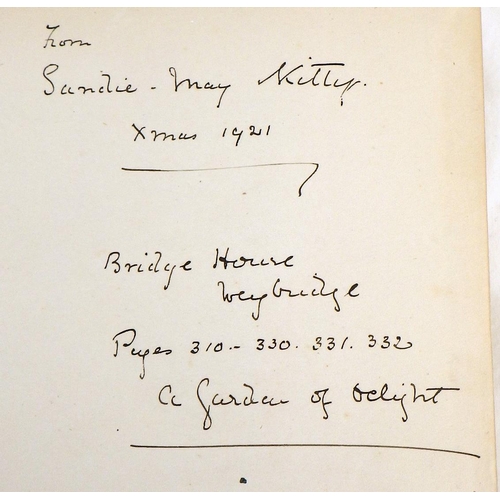 From
Sandie - May Kitty.
Xmas 1921
Bridge House
Weybridge
Pages 310 - 330. 331. 332
A Garden of Delight